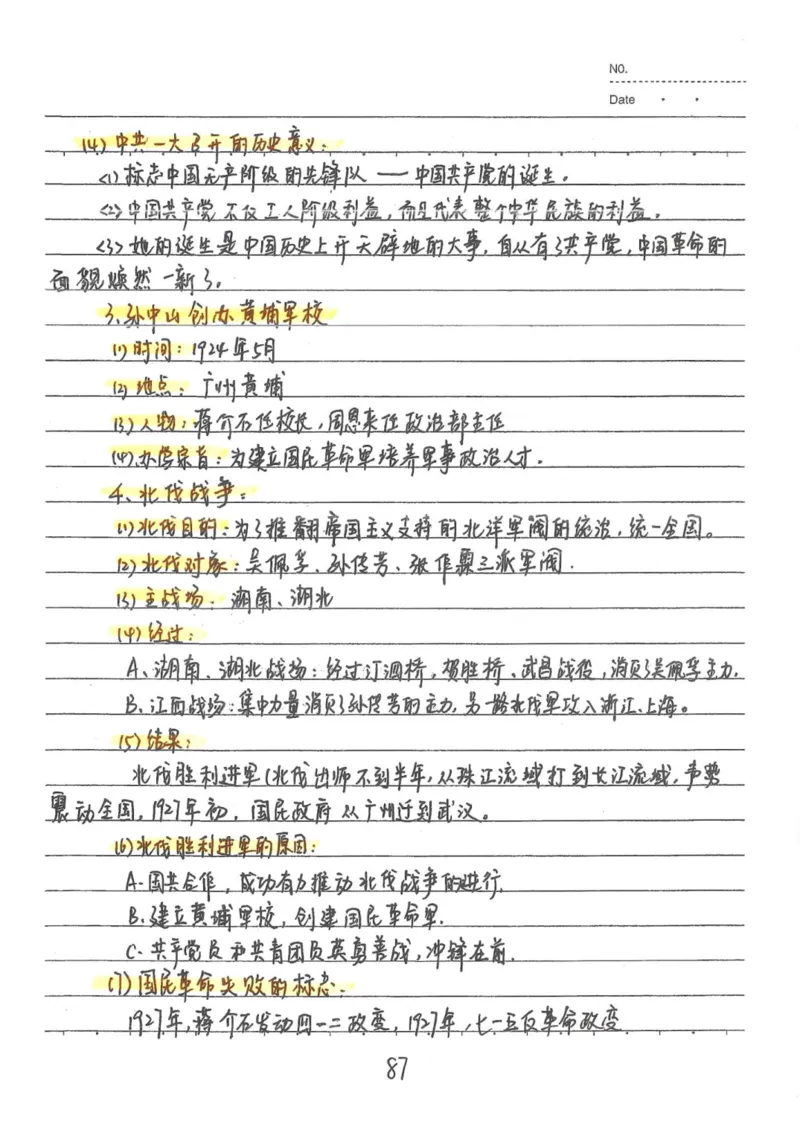 NO.
Date
(4)中共一大召开的历史意义:
<1>标志中国无产阶级的先锋队——中国共产党的诞生。
<2>中国共产党不仅工人阶级利益,而且代表整个中华民族的利益。
<3>她的诞生是中国历史上开天辟地的大事,自从有了共产党,中国革命的
面貌焕然一新了。
3、孙中山创办黄埔军校
(1)时间:1924年5月
(2)地点:广州黄埔
(3)人物:蒋介石任校长,周恩来任政治部主任
(4)办学宗旨:为建立国民革命军培养军事政治人才.
4、北伐战争:
(1)北伐目的:为了推翻帝国主义支持的北洋军阀的统治,统一全国。
(2)北伐对象:吴佩孚、孙传芳、张作霖三派军阀.
(3)主战场:湖南、湖北
(4)经过:
A、湖南、湖北战场:经过汀泗桥,贺胜桥、武昌战役,消灭了吴佩孚主力.
B、江西战场:集中力量消灭了孙传芳的主力,另一路北伐军攻入浙江、上海。
(5)结果:
北伐胜利进军(北伐出师不到半年,从珠江流域打到长江流域,声势
震动全国,1927年初,国民政府从广州迁到武汉。
(6)北伐胜利进军的原因:
A.国共合作,成功有力推动北伐战争的进行.
B.建立黄埔军校,创建国民革命军.
C.共产党员和共青团员英勇善战,冲锋在前.
(7)国民革命失败的标志:
1927年,蒋介石发动四一二政变,1927年,七一五反革命政变
87